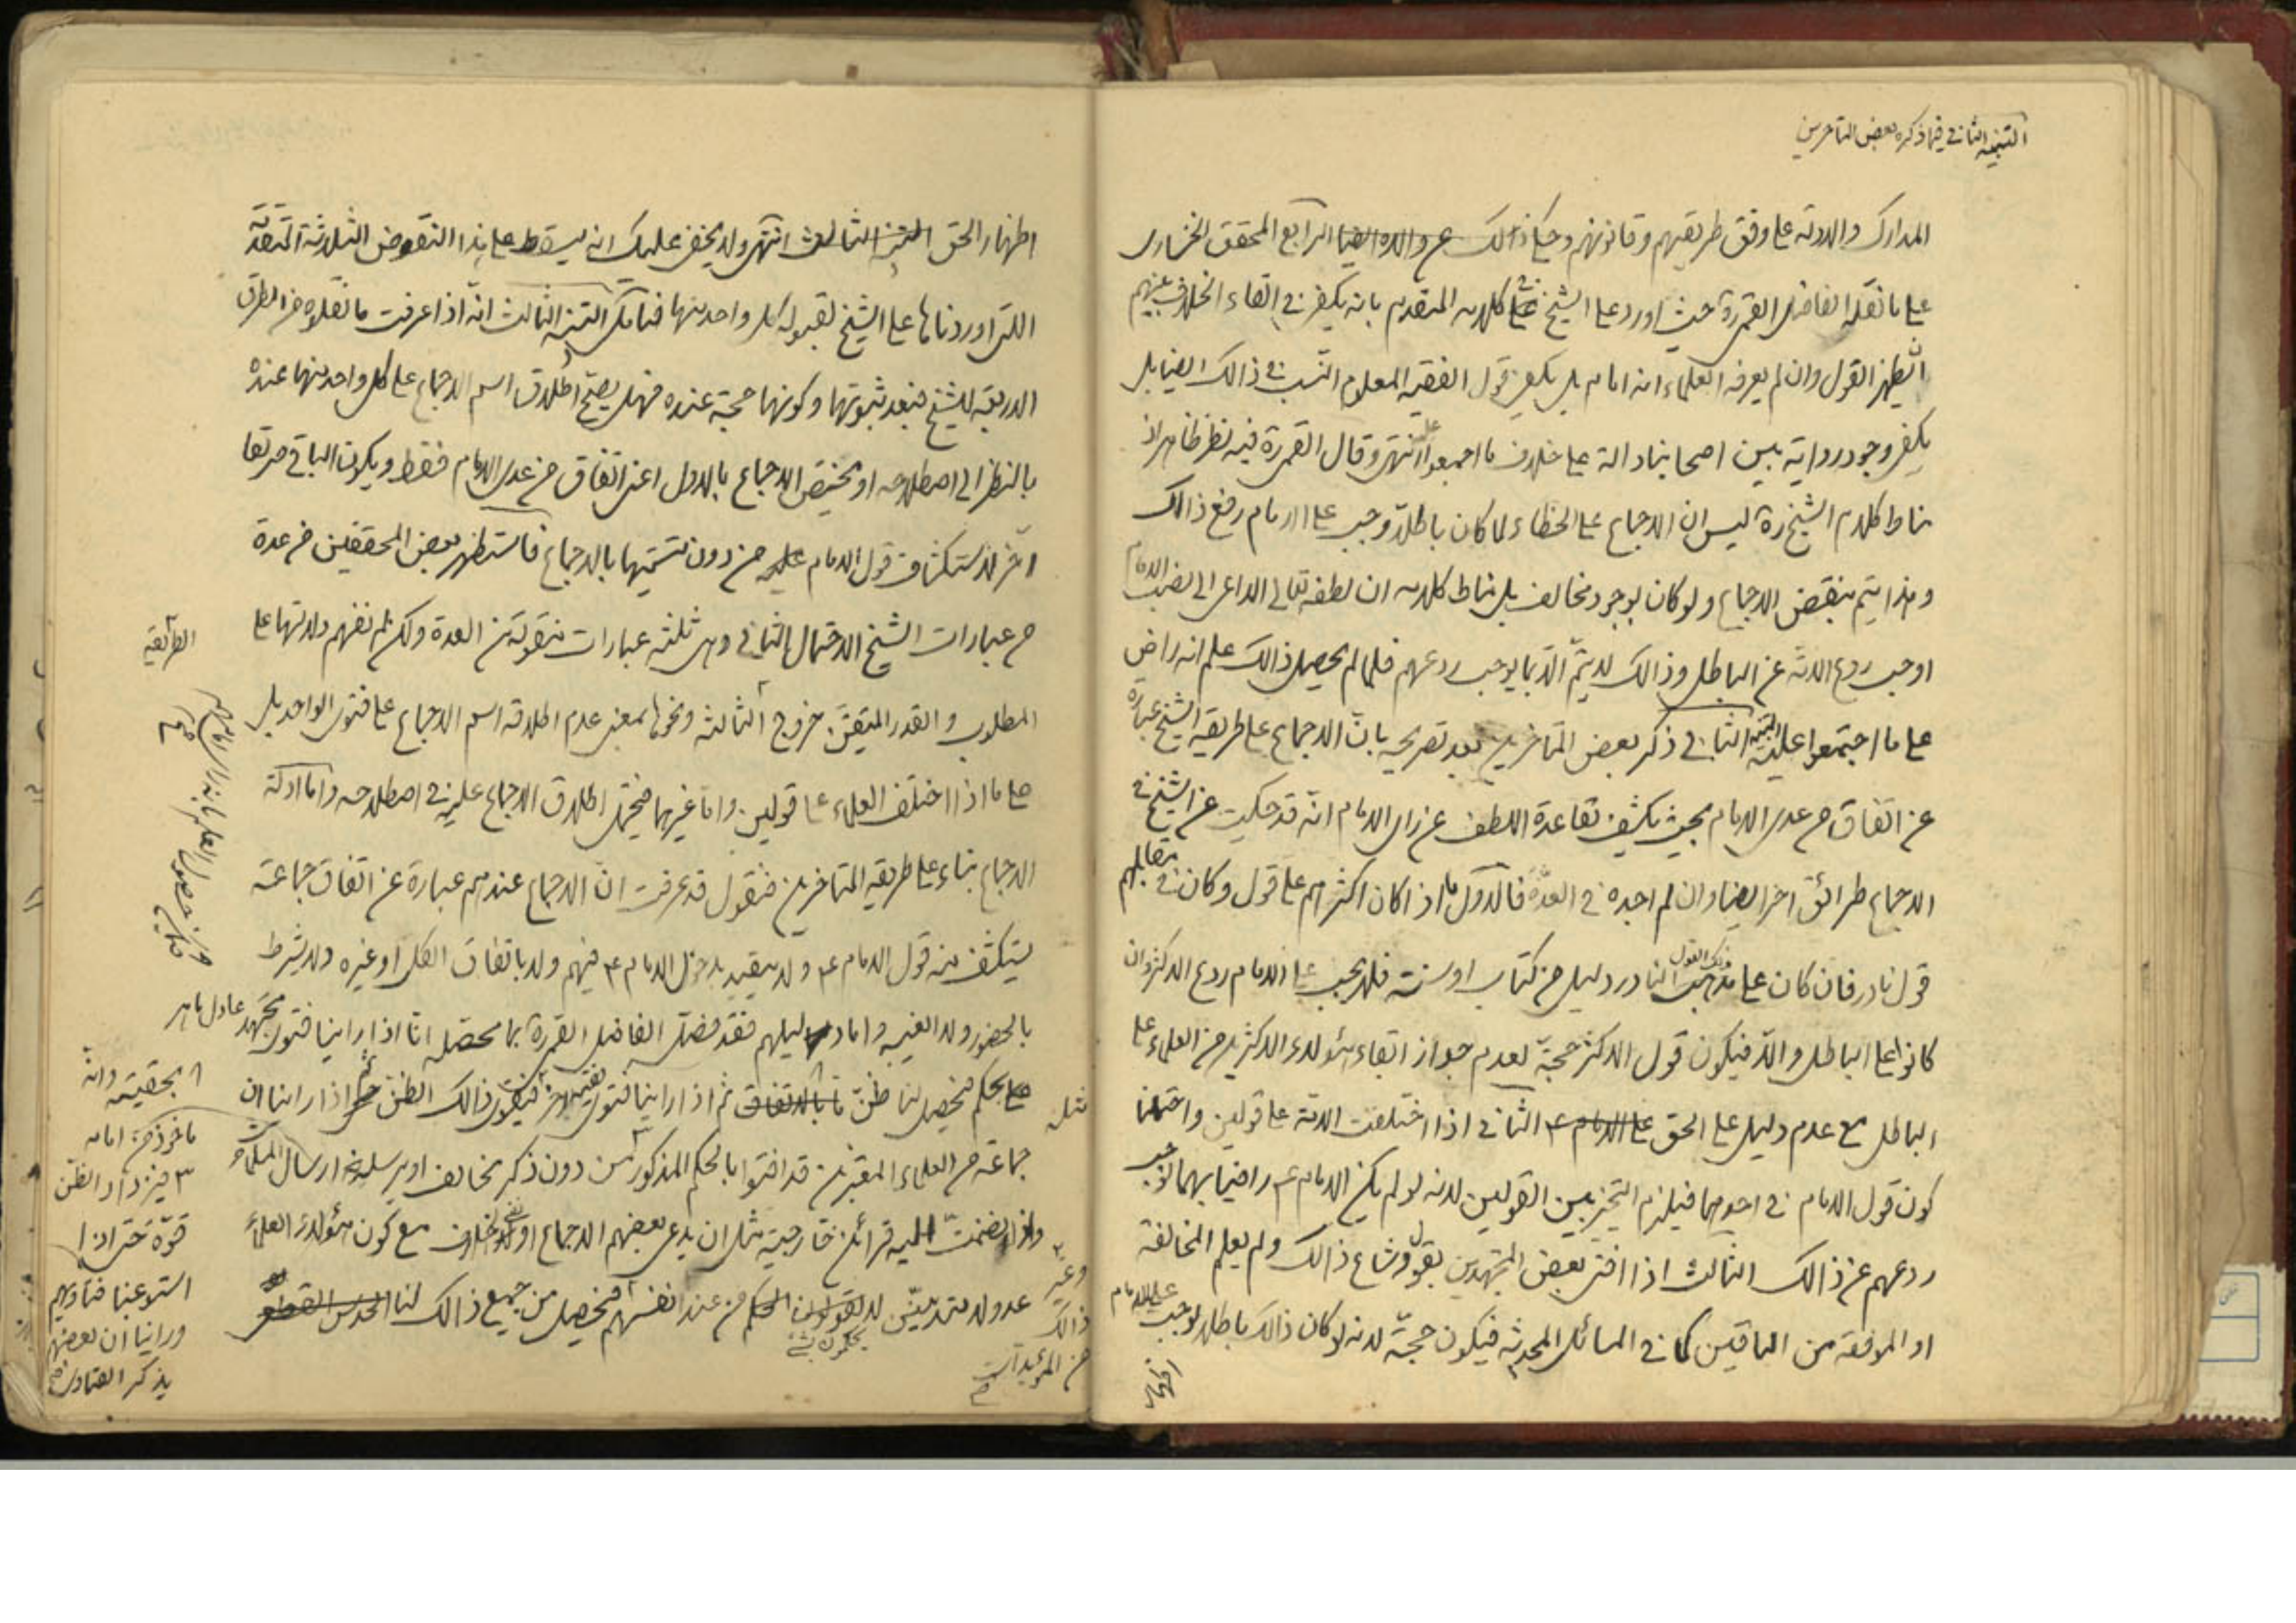 التنبيه الثاني فيما ذكره بعض المتاخرين
المدارك والادلة على وفق طريقتهم وقانونهم وحكى ذالك عن والده ايضا الرابع المحقق الخنساري
على ما نقله الفاضل القمي ره حيث اورد على الشيخ في كلامه المتقدم بانه يكفي في القاء الخلاف بينهم
ان يظهر القول وان لم يعرفه العلماء انه امام بل يكفي قول الفقيه المعلوم النسب في ذالك ايضا بل
يكفي وجود رواية بين اصحابنا دالة على خلاف ما اجمعوا عليه انتهى وقال القمي ره فيه نظر ظاهر اذ
مناط كلام الشيخ ره ليس ان الاجماع على الخطاء لما كان باطلا وجب على الامام رفع ذالك
وهذا يتم بنقض الاجماع ولو كان بوجود مخالف بل مناط كلامه ان لطفه تعالى الداعي الى نصب الامام
اوجب ردع الامة عن الباطل وذالك لا يتم الا بما يوجب ردعهم فلما لم يحصل ذالك علم انه راض
على ما اجتمعوا عليه التنبيه الثاني ذكر بعض المتاخرين بعد تصريحه بان الاجماع على طريقة الشيخ عبارة
عن اتفاق من عدى الامام بحيث يكشف بقاعدة اللطف عن راى الامام انه قد حكيت عن الشيخ في
الاجماع طرائق اخر ايضا وان لم اجده في العدة فالاول ما اذا كان اكثرهم على قول وكان في مقابلهم
قول نادر فان كان على ذلك القول النادر دليل من كتاب او سنة فلا يجب على الامام ردع الاكثر وان
كانوا على الباطل والا فيكون قول الاكثر حجة لعدم جواز ابقاء هؤلاء الاكثرين من العلماء على
الباطل مع عدم دليل على الحق على الامام ع الثاني اذا اختلفت الامة على قولين واحتملنا
كون قول الامام في احدهما فيلزم التخيير بين القولين لانه لو لم يكن الامام ع راضيا بهما لوجب
ردعهم عن ذالك الثالث اذا افتى بعض المجتهدين بقول وشاع ذالك ولم يعلم المخالفة
او الموافقة من الباقين كما في المسائل المحدثة فيكون حجة لانه لو كان ذالك باطلا لوجب على الامام
اظهار
اظهار الحق التنبيه الثالث انتهى ولا يخفى عليك انه يسقط على هذا النقوض الثلاثة المتقدمة
اللتى اوردناها على الشيخ لقبوله كل واحد منها فتامل التنبيه الثالث انه اذا عرفت ما نقلوه من الطرق
الاربعة للشيخ فبعد ثبوتها وكونها حجة عنده فهل يصح اطلاق اسم الاجماع على كل واحد منها عنده
بالنظر الى اصطلاحه او يختص الاجماع بالاول اعنى اتفاق من عدى الامام فقط ويكون الباقي طريقا
آخر لاستكشاف قول الامام عليه من دون تسميتها بالاجماع فاستظهر بعض المحققين من عدة
من عبارات الشيخ الاحتمال الثاني وهى ثلثه عبارات منقولة من العدة ولكن لم نفهم دلالتها على
المطلوب والقدر المتيقن خروج الثالثة ونحوها بمعنى عدم اطلاقه اسم الاجماع على فتوى الواحد بل
على ما اذا اختلف العلماء على قولين واما غيرهما فيحتمل اطلاق الاجماع عليه في اصطلاحه واما ادلة
الاجماع بناء على طريقة المتاخرين فنقول قد عرفت ان الاجماع عندهم عبارة عن اتفاق جماعة
يستكشف منه قول الامام ع ولا يتقيد بدخول الامام ع فيهم ولا باتفاق الكل او غيره ولا يشرط
بالحضور ولا الغيبة واما دليلهم فقد فصل الفاضل القمي ره بما محصله انا اذا راينا فتوى مجتهد عادل ماهر
على بحكم فيحصل لنا ظن ما بالاتفاق ثم اذا راينا فتوى فقيه اخر فيقوى ذالك الظن حتى اذا راينا ان
جماعة من العلماء المعتبرين قد افتوا بالحكم المذكور من دون ذكر مخالف او يرسلونه ارسال المسلمات
واذا انضمت اليه قرائن خارجية مثل ان يدعى بعضهم الاجماع او نفى الخلاف مع كون هؤلاء العلماء
عدولا متدينين لا يقولون الحكم من عند انفسهم فيحصل من جميع ذالك لنا الحدس القطعي
يحكمون بشئ
مثل
وغير
ذالك
من المؤيدات
الطريقة
بحقيقته وانه
ماخوذ من امامه
فيزداد الظن
قوة حتى اذا
استوعبنا فتاويهم
وراينا ان بعضهم
يذكر الفتاوى